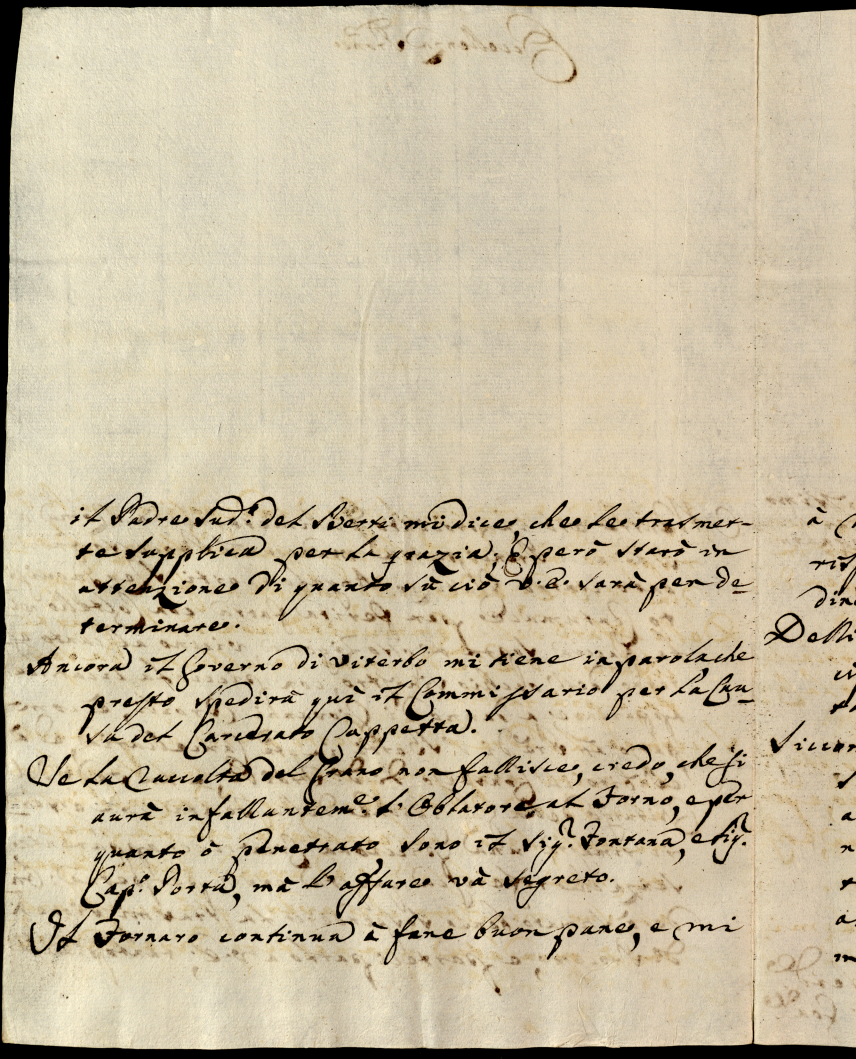 il Padre sud.º del Sverti mi dice, che le trasmet-
te supplica per la grazia; E però starò in
attenzione di quanto sù ciò V. E. sarà per de-
terminare.
Ancora il Governo di Viterbo mi tiene in parola che
presto spedirà quì il Commissario per la Cau-
sa del Carcerato Cappetta.
Se la raccolta del Grano non fallisce, credo, che si
aurà infallantem.e l'Oblatore al Forno, e per
quanto ò penetrato sono il Sig.r Fontana, e Sig.r
Cap.º Porta, mà l'affare và segreto.
Il Fornaro continua à fare buon pane, e mi
à
ris
din
Delli
Sicur